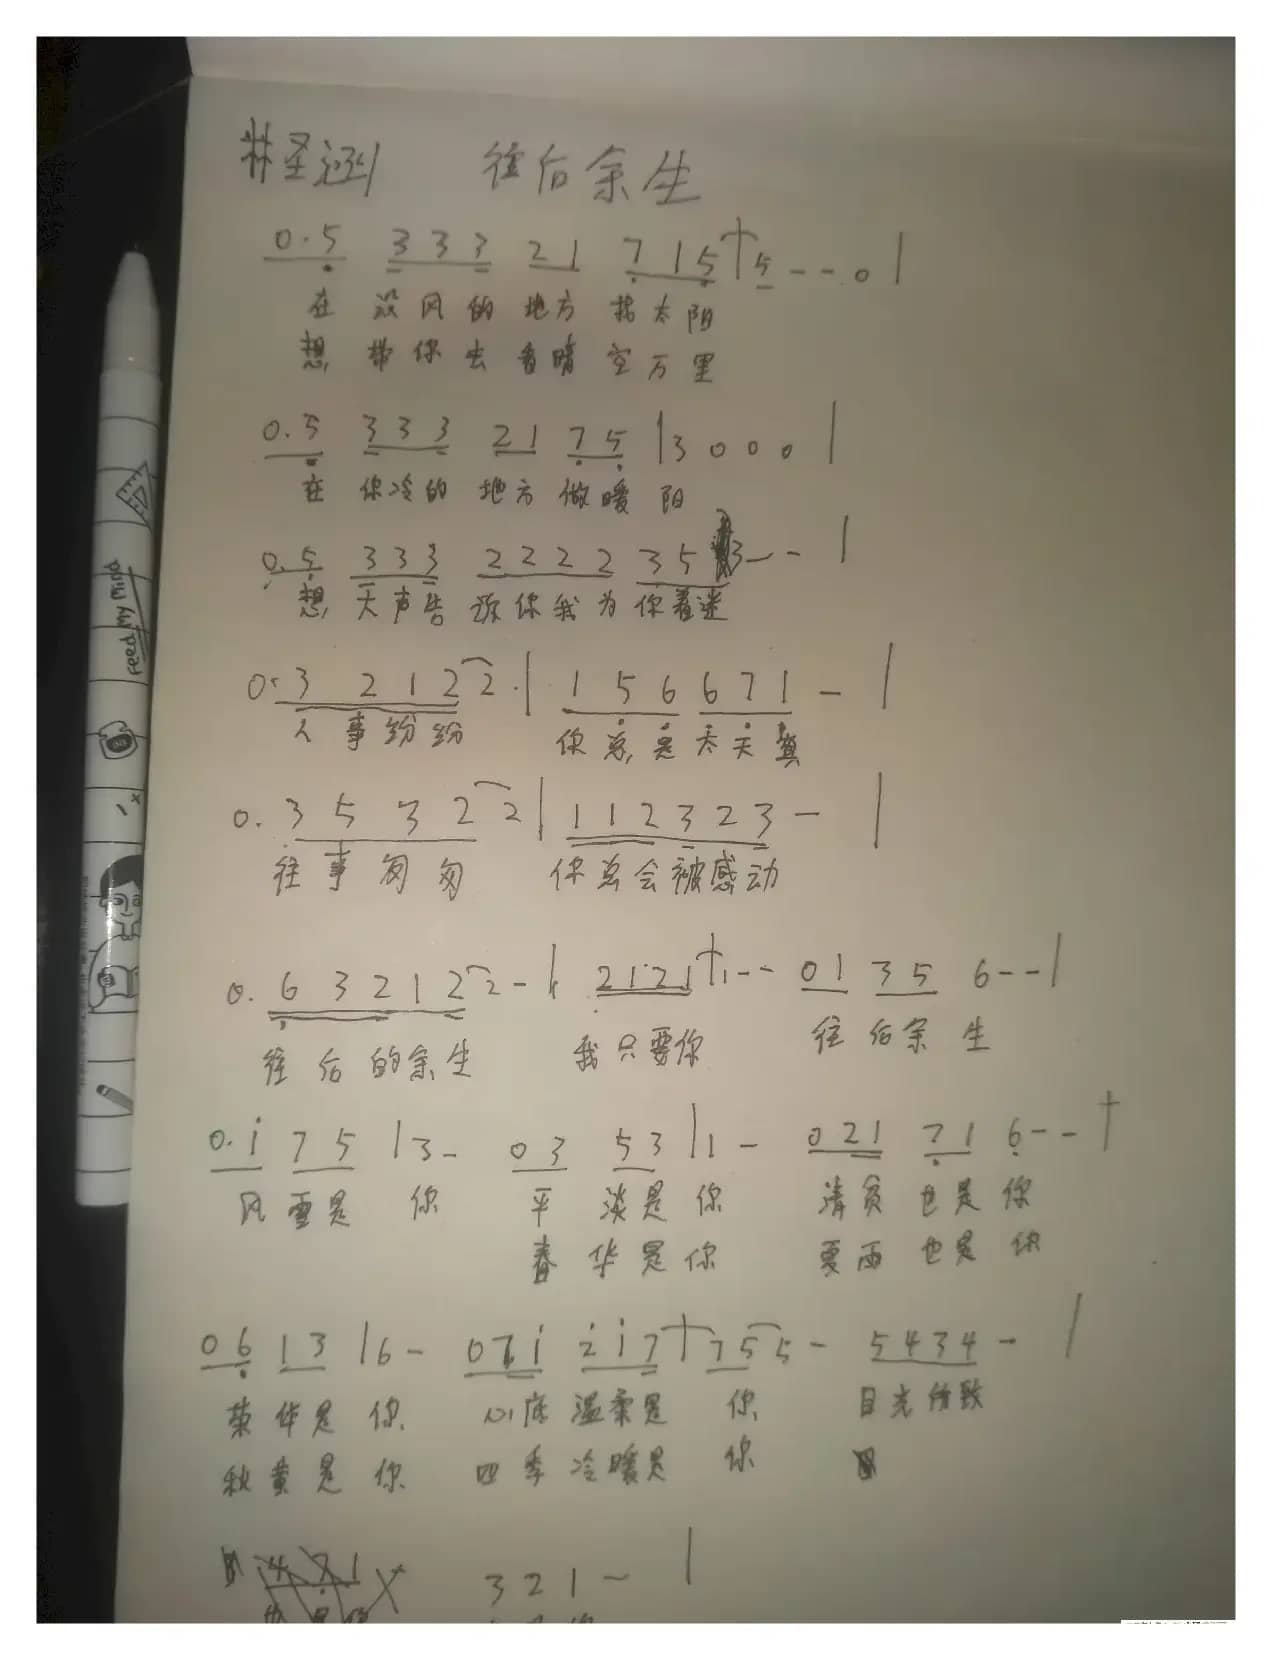 林圣涵 往后余生
0.5 333 21 715 | 5 - - 0 |
在 没风的 地方 找太阳
想 带你去 看晴空万里
0.5 333 21 75 | 3 0 0 0 |
在 你冷的 地方 做暖 阳
0.5 333 2222 35 3 - - |
想 大声告 诉你我为 你着迷
0. 3 2 1 2 2. | 1 5 6 6 7 1 - |
人 事纷纷 你总是太天真
0. 3 5 3 2 2 | 1 1 2 3 2 3 - |
往事匆匆 你总会被感动
0. 6 3 2 1 2 2 - | 2121 | 1 - - 01 35 6 - - |
往后的余生 我只要你 往后余生
0.1 75 | 3 - 03 53 | 1 - 021 71 6 - - |
风 雪是 你 平 淡是 你 清贫 也是 你
春 华是 你 夏雨 也是 你
06 13 | 6 - 071 217 | 75 5 - 5434 - |
荣 华是 你 心底 温柔是 你 目光所致
秋 黄是 你 四季 冷暖是 你
4 7 1 321 - |
Feed my mind